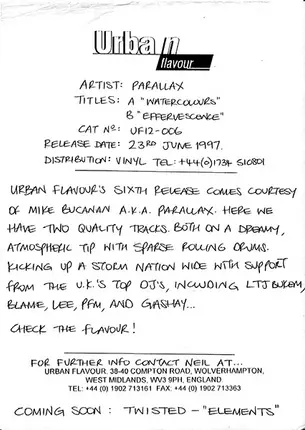 Urban
flavour
ARTIST: PARALLAX
TITLES: A "WATERCOLOURS"
B "EFFERVESCENCE"
CAT NO: UF12-006
RELEASE DATE: 23RD JUNE 1997.
DISTRIBUTION: VINYL TEL: +44(0)1734 510801
URBAN FLAVOUR'S SIXTH RELEASE COMES COURTESY
OF MIKE BUCANAN A.K.A. PARALLAX. HERE WE
HAVE TWO QUALITY TRACKS. BOTH ON A DREAMY,
ATMOSPHERIC TIP WITH SPARSE ROLLING DRUMS.
KICKING UP A STORM NATION WIDE WITH SUPPORT
FROM THE U.K.'S TOP DJ'S, INCLUDING LTJ BUKEM,
BLAME, LEE, PFM, AND GASHAY...
CHECK THE FLAVOUR!
FOR FURTHER INFO CONTACT NEIL AT...
URBAN FLAVOUR, 38-40 COMPTON ROAD, WOLVERHAMPTON,
WEST MIDLANDS, WV3 9PH, ENGLAND
TEL: +44 (0) 1902 713161 FAX: +44 (0) 1902 713363
COMING SOON: TWISTED - "ELEMENTS"